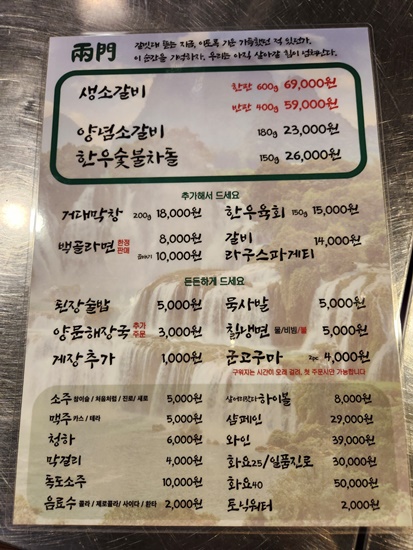 兩門
갈빗대 뜯는 지금, 이토록 기운 가득했던 적 있던가.
이 순간을 기억하자, 우리는 아직 살아갈 힘이 넘쳐난다.
생소갈비 한판 600g 69,000원
반판 400g 59,000원
양념소갈비 180g 23,000원
한우숯불차돌 150g 26,000원
추가해서 드세요
거대막창 200g 18,000원
백골라면 한정판매 8,000원
10,000원
한우육회 150g 15,000원
갈비 라구스파게티 14,000원
든든하게 드세요
된장술밥 5,000원
양문해장국 추가주문 3,000원
게장추가 1,000원
묵사발 5,000원
칡냉면 물/비빔/불 5,000원
군고구마 2pc 4,000원
구워지는 시간이 오래 걸려, 첫 주문시만 가능합니다
소주 참이슬 / 처음처럼 / 진로 / 새로 5,000원
맥주 카스 / 테라 5,000원
청하 6,000원
막걸리 4,000원
독도소주 10,000원
음료수 콜라 / 제로콜라 / 사이다 / 환타 2,000원
하이볼 8,000원
샴페인 29,000원
와인 39,000원
화요25/일품진로 30,000원
화요40 50,000원
토닉워터 2,000원